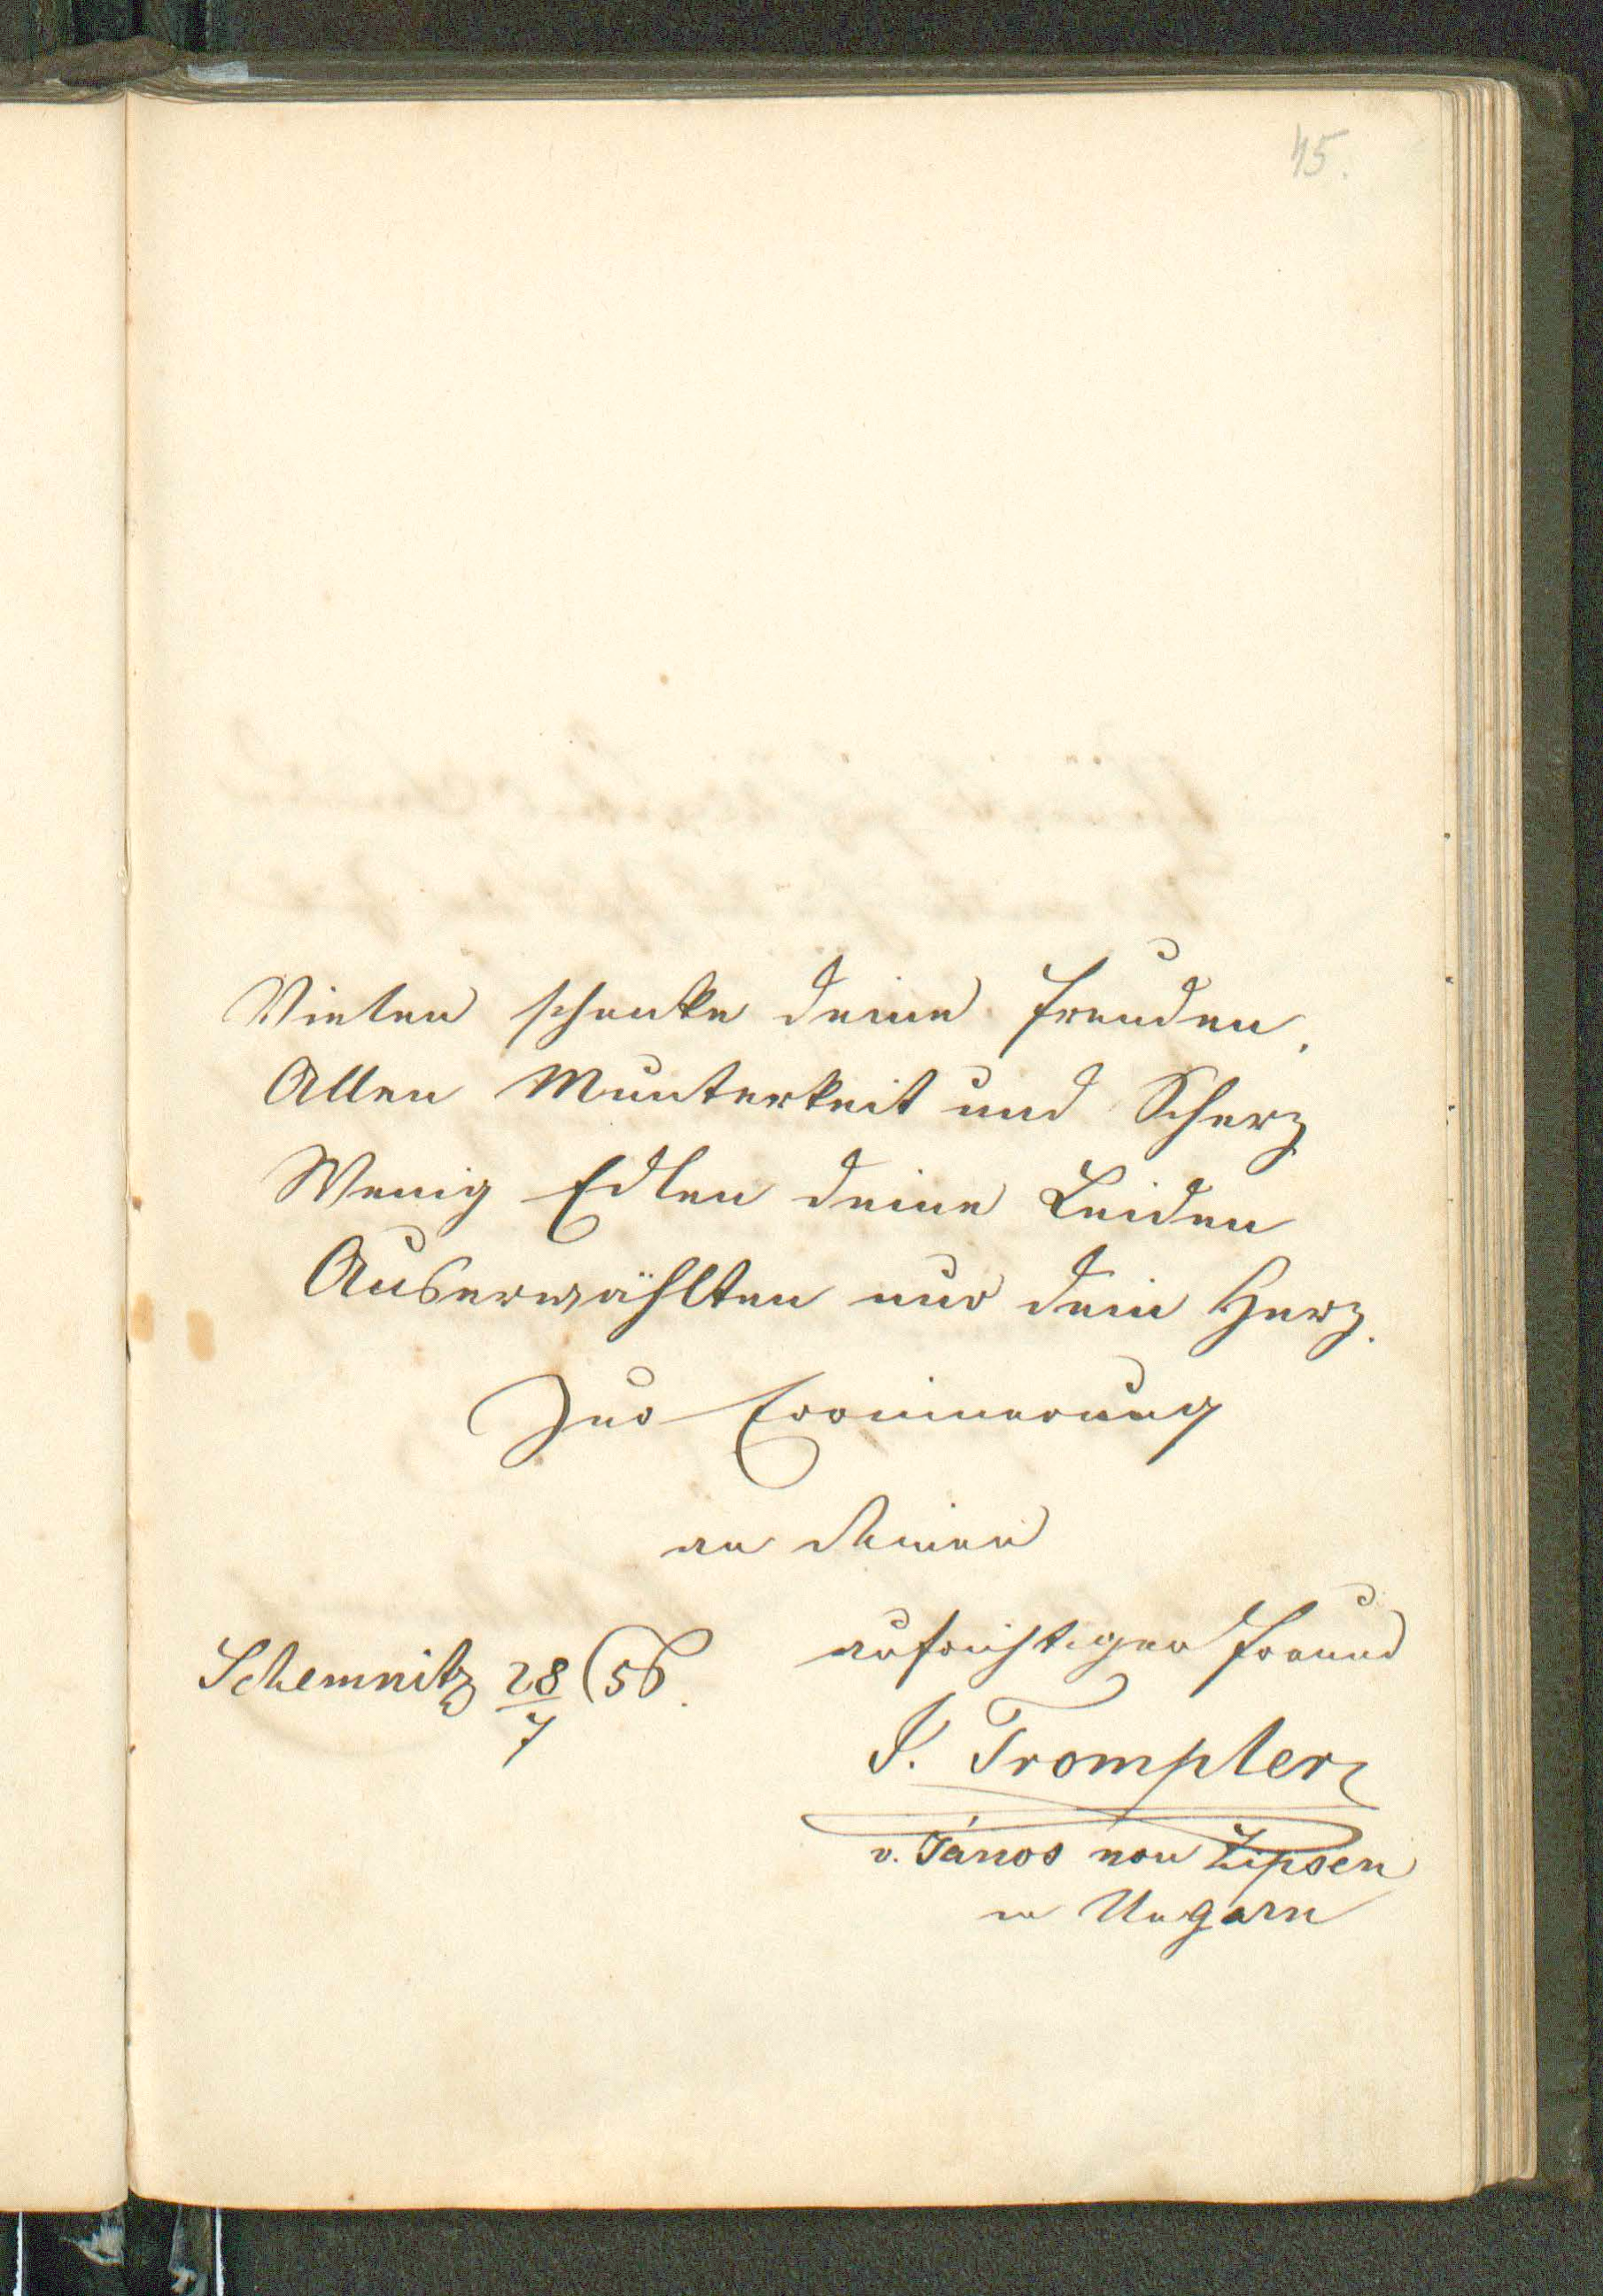 45.
Vielen schenke deine Freuden,
Allen Munterkeit und Scherz
Wenig Edlen deine Leiden
Auserwählten nur dein Herz.
Zur Erinnerung
an deinen
aufrichtigen Freund
Schemnitz 28/7 (56.
J. Trompler
v. János von Zipsen
in Ungarn